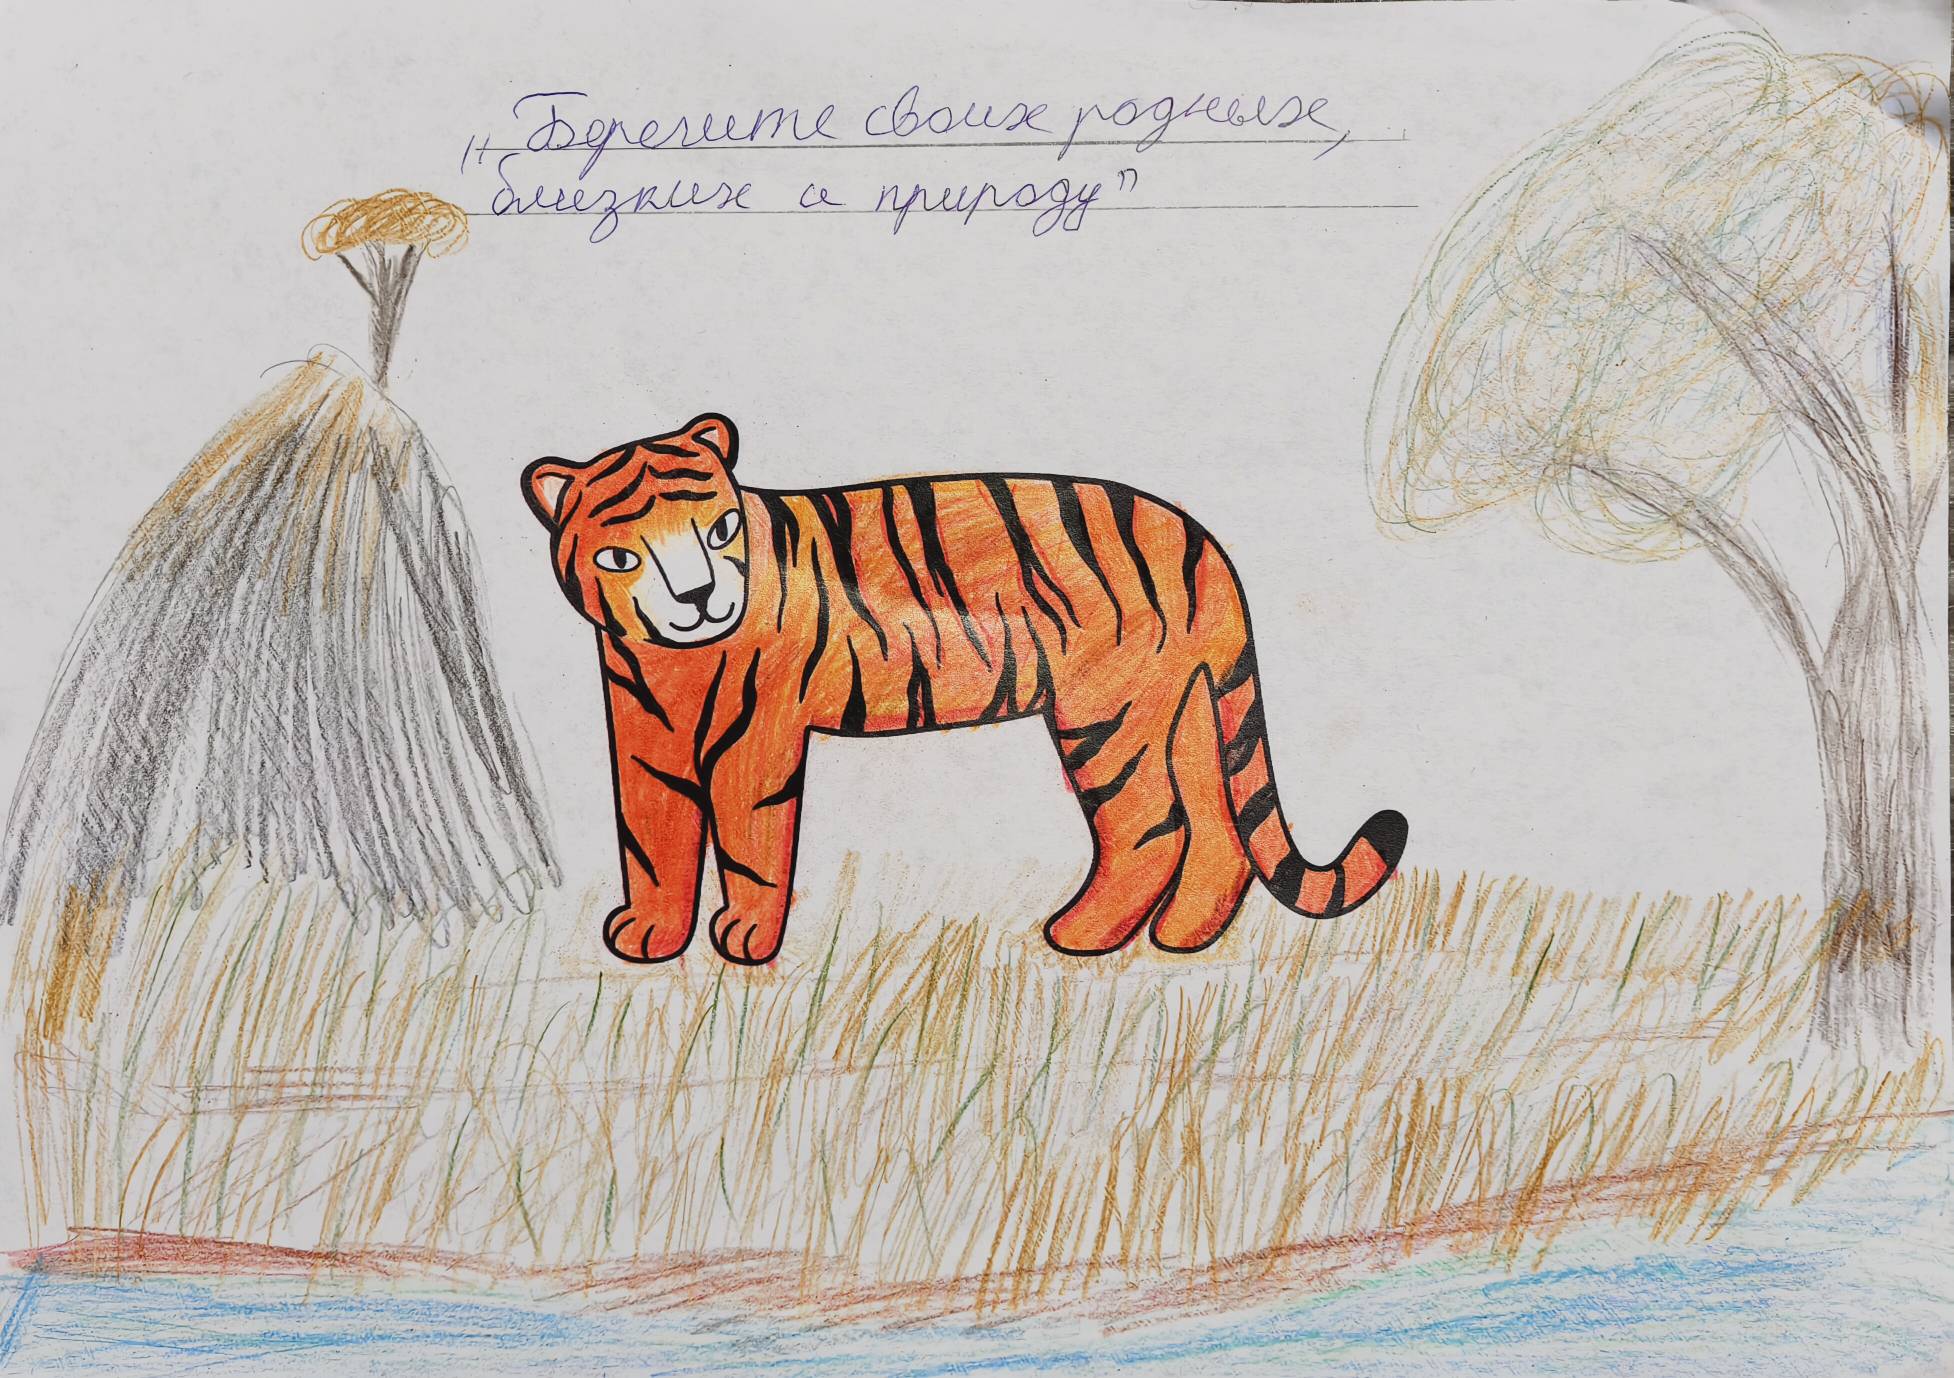 „Берегите своих родных,
близких и природу"